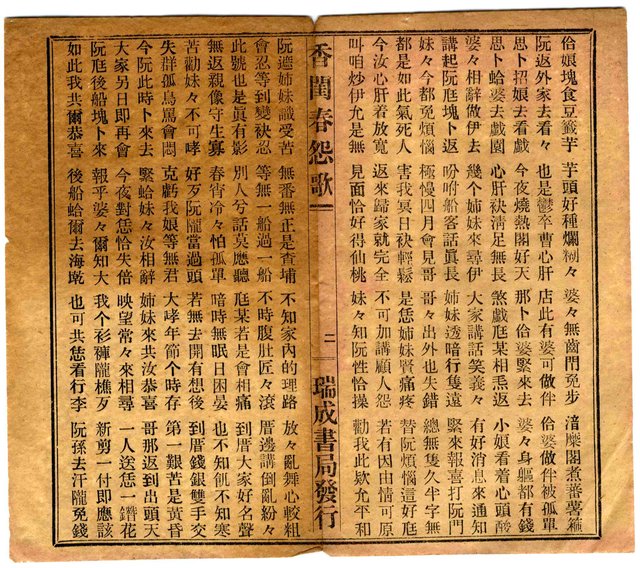 佮娘塊食豆籤芋　芋頭好種爛糊々　婆々無齒門免步　湆糜閣煮蕃薯箍
阮返外家去看々　也是鬱卒曹心肝　店此有婆可做伴　佮婆做伴被孤單
思卜招娘去看戲　今夜燒熱閣好天　那卜佮婆緊來去　婆々身軀都有錢
思卜蛤婆去戲園　心肝袂清足無長　煞戲尫某相焄返　小娘看着心頭酸
婆々相辭做伊去　幾個姊妹來尋伊　大家講話笑義々　有好消息來通知
講起阮尫塊卜返　吩咐船客話眞長　姊妹透暗行隻遠　緊來報喜打阮門
妹々今都免煩惱　極慢四月會見哥　哥々出外也失錯　總無隻久半字無
都是如此氣死人　害我冥日袂輕鬆　是恁姊妹賢痛疼　替阮煩惱這好尫
今汝心肝着放寬　返來歸家就完全　不可加講顧人怨　若有因由情可原
叫咱炒伊尤是無　見面恰好得仙桃　妹々知阮性恰操　勸我此欵允平和
香閨春怨歌　二　瑞成書局發行
阮德姊妹識受苦　無番無正是查埔　不知家內的理路　放々亂舞心較粗
會忍等到變袂忍　等無一船過一船　不時腹肚匠々滾　厝邊講倒亂紛々
此號也是眞有影　別人兮話莫應聽　尫某若是會相痛　到厝大家好名聲
無返親像守生寡　春宵冷々怕孤單　暗時無眠日困晏　也不知飢不知寒
苦勸妹々不可哮　好歹阮隴當過頭　若無去開有想後　到厝錢銀雙手交
失群孤鳥罵會悶　克虧我娘等無君　大哮年節個時存　第一艱苦是黃昏
今阮此時卜來去　緊蛤妹々汝相辭　姊妹來共汝恭喜　哥那返到出頭天
大家另日即再會　今夜對恁恰失倍　映望常々來相尋　一人送恁一鐕花
阮尫後船塊卜來　報乎婆々爾知大　我个衫褲隴樵歹　新剪一付即應該
如此我共爾恭喜　後船蛤爾去海墘　也可共恁看行李　阮孫去汗隴免錢